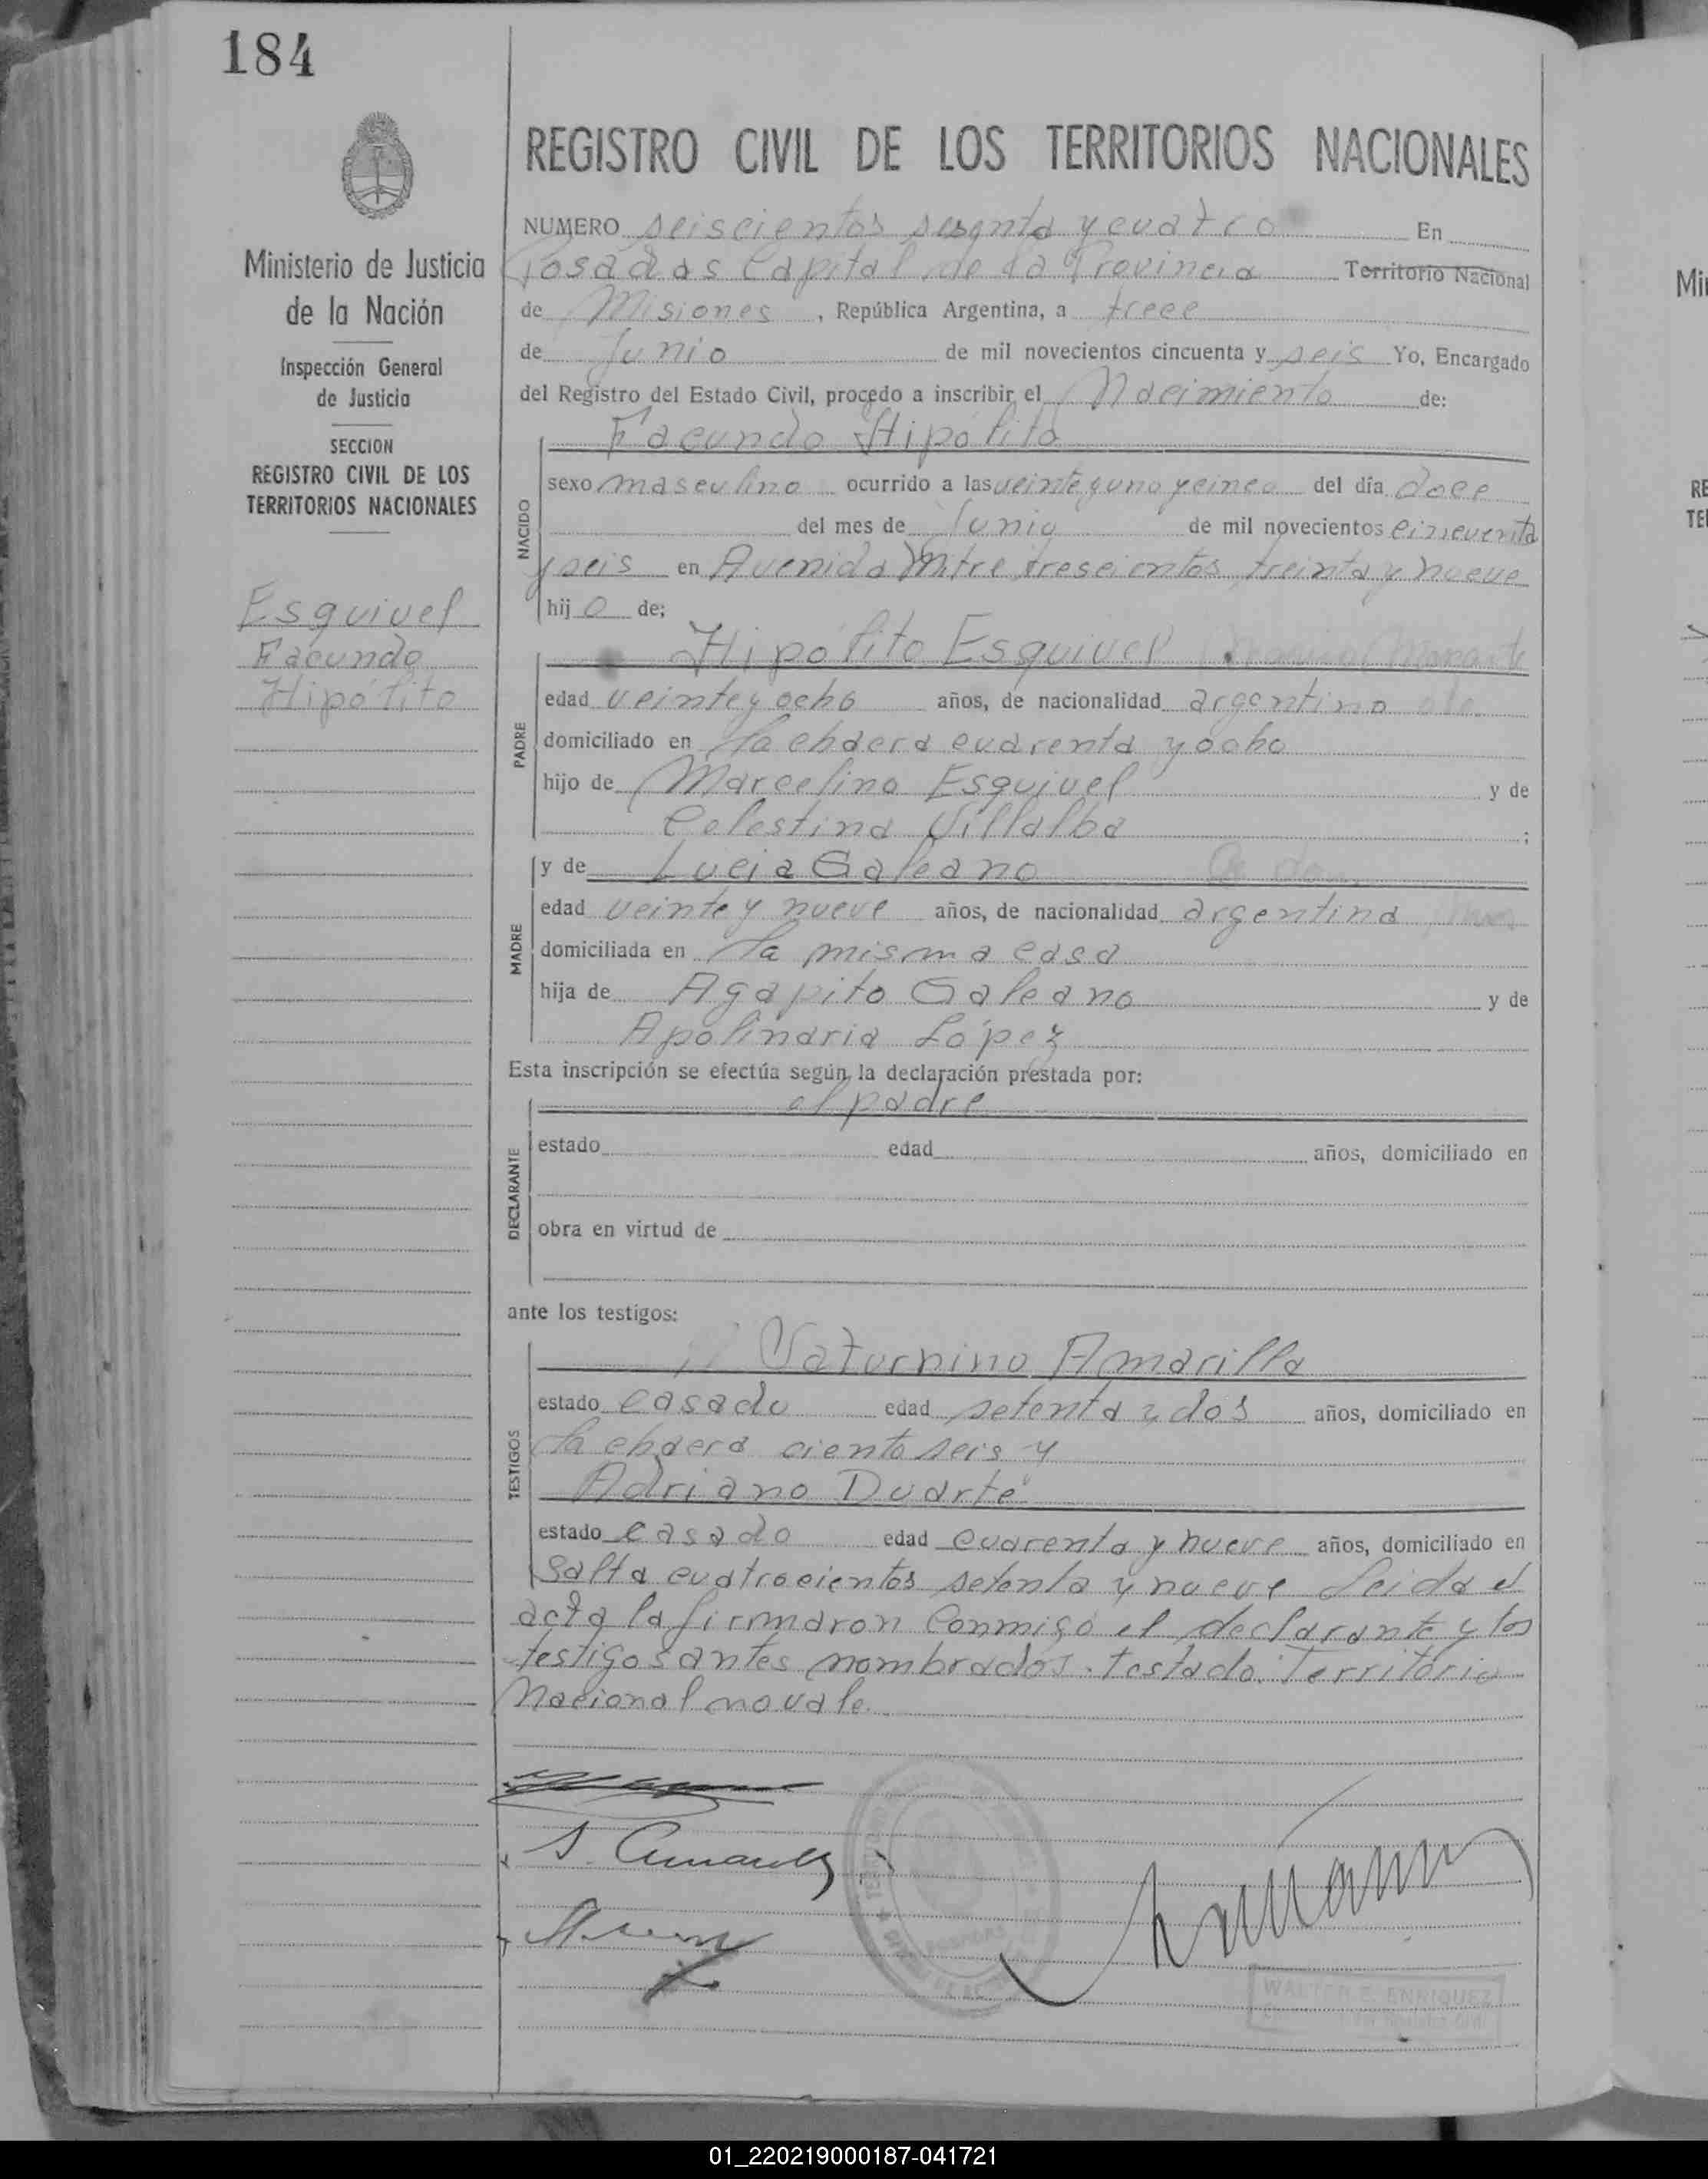 184
REGISTRO CIVIL DE LOS TERRITORIOS NACIONALES
Ministerio de Justicia
de la Nación
Inspección General
de Justicia
SECCION
REGISTRO CIVIL DE LOS
TERRITORIOS NACIONALES
Esquivel
Facundo
Hipólito
NUMERO seiscientos sesenta y cuatro En
Posadas Capital de la Provincia Territorio Nacional
de Misiones, República Argentina, a trece
de Junio de mil novecientos cincuenta y seis Yo, Encargado
del Registro del Estado Civil, procedo a inscribir el Nacimiento de:
Facundo Hipólito
NACIDO
sexo masculino ocurrido a las veinte y uno y cinco del día doce
del mes de Junio de mil novecientos cincuenta
y seis en Avenida Mitre trescientos treinta y nueve
hijo de;
Hipólito Esquivel
PADRE
edad veinte y ocho años, de nacionalidad argentino
domiciliado en la chacra cuarenta y ocho
hijo de Marcelino Esquivel y de
Celestina Villalba ;
y de Lucia Galeano
MADRE
edad veinte y nueve años, de nacionalidad argentina
domiciliada en la misma casa
hija de Agapito Galeano y de
Apolinaria López
Esta inscripción se efectúa según la declaración prestada por:
el padre
DECLARANTE
estado edad años, domiciliado en
obra en virtud de
ante los testigos:
Saturnino Amarilla
TESTIGOS
estado casado edad setenta y dos años, domiciliado en
la chacra ciento seis y
Adriano Duarte
estado casado edad cuarenta y nueve años, domiciliado en
Salta cuatrocientos setenta y nueve Leida el
acta la firmaron conmigo el declarante y los
testigos antes nombrados. testado: Territorio
Nacional no vale.
WALTER E. ENRIQUEZ
01_220219000187-041721